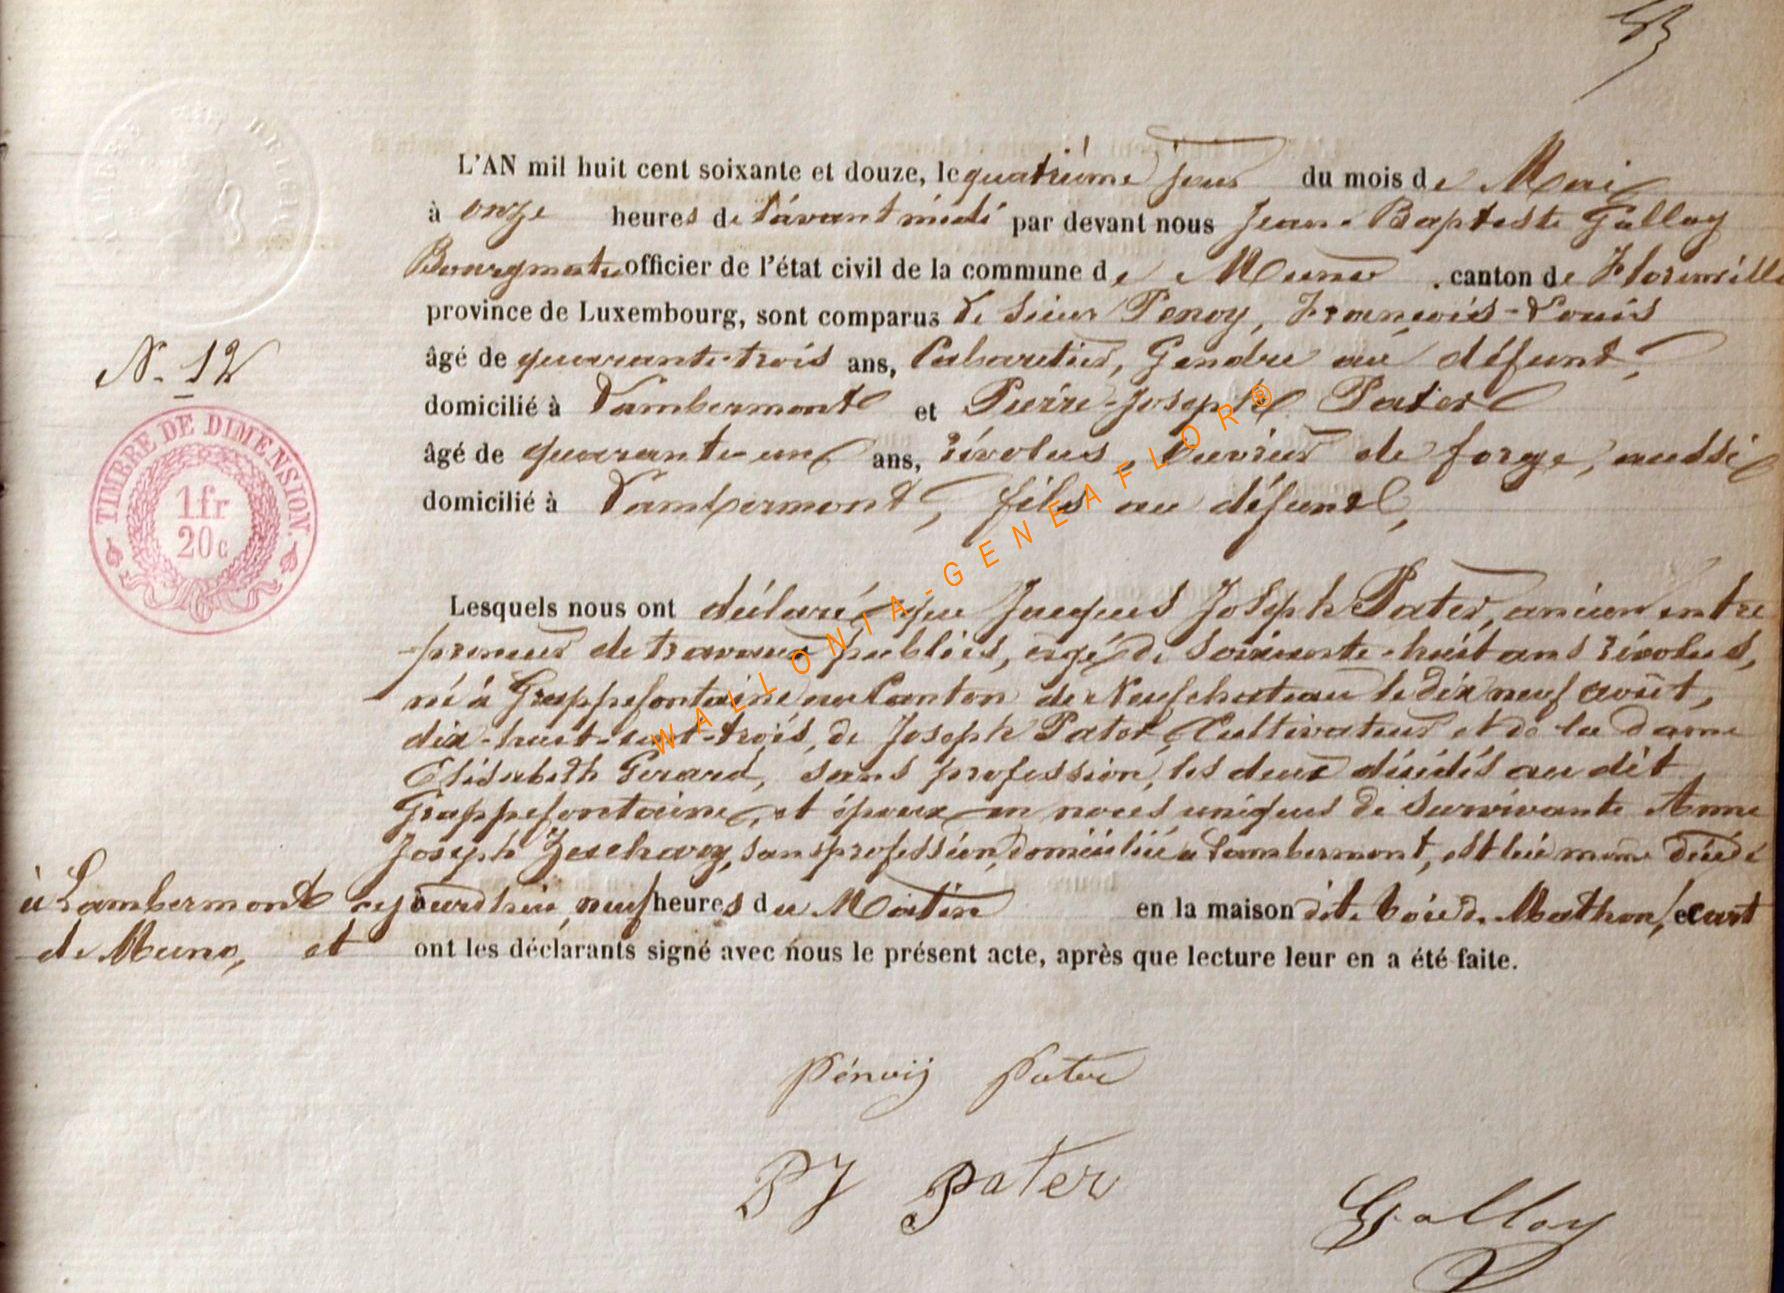 N. 12
TIMBRE DE DIMENSION.
1fr
20c
L'AN mil huit cent soixante et douze, le quatrième jour du mois de Mai
à onze heures de l'avant midi par devant nous Jean-Baptiste Galloy
Bourgmestre officier de l'état civil de la commune de Muno, canton de Florenville
province de Luxembourg, sont comparus le Sieur Penoy, François-Louis
âgé de quarante-trois ans, Cabaretier, Gendre au défunt,
domicilié à Lambermont et Pierre-Joseph Pater
âgé de quarante-un ans, révolus, Ouvrier de forge, aussi
domicilié à Lambermont, fils au défunt,
Lesquels nous ont déclaré que Jacques Joseph Pater, ancien entre
-preneur de travaux publics, âgé de soixante-huit ans révolus,
né à Grappefontaine au Canton de Neufchateau le dix neuf août,
dix-huit-cent-trois, de Joseph Pater, Cultivateur et de la dame
Elisabeth Gerard, sans profession, les deux décédés au dit
Grappefontaine, et époux en noces uniques de survivante Anne
Joseph sans profession, domiciliée à Lambermont, est lui même décédé
à Lambermont cejourd'hui neuf heures du Matin en la maison dite Voie de Mathon, écart
de Muno, et ont les déclarants signé avec nous le présent acte, après que lecture leur en a été faite.
Pénoij Pater
PJ Pater
Galloy
WALLONIA-GENEAFLOR®